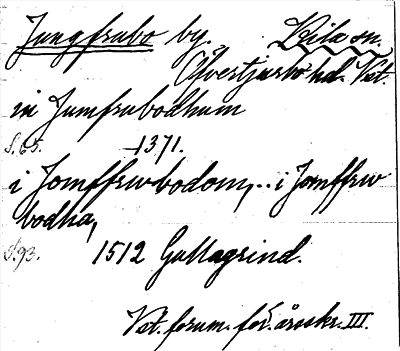 Jungfrubo by. Lila sn.
Övertjurbo hd. Vst.
in Jumfrubodhum
S. 65. 1371.
i Jomffrwbodom, .. i Jomffrw
bodha,
S. 93. 1512 Gullagrind.
Vst. fornm. för. årsskr. III.